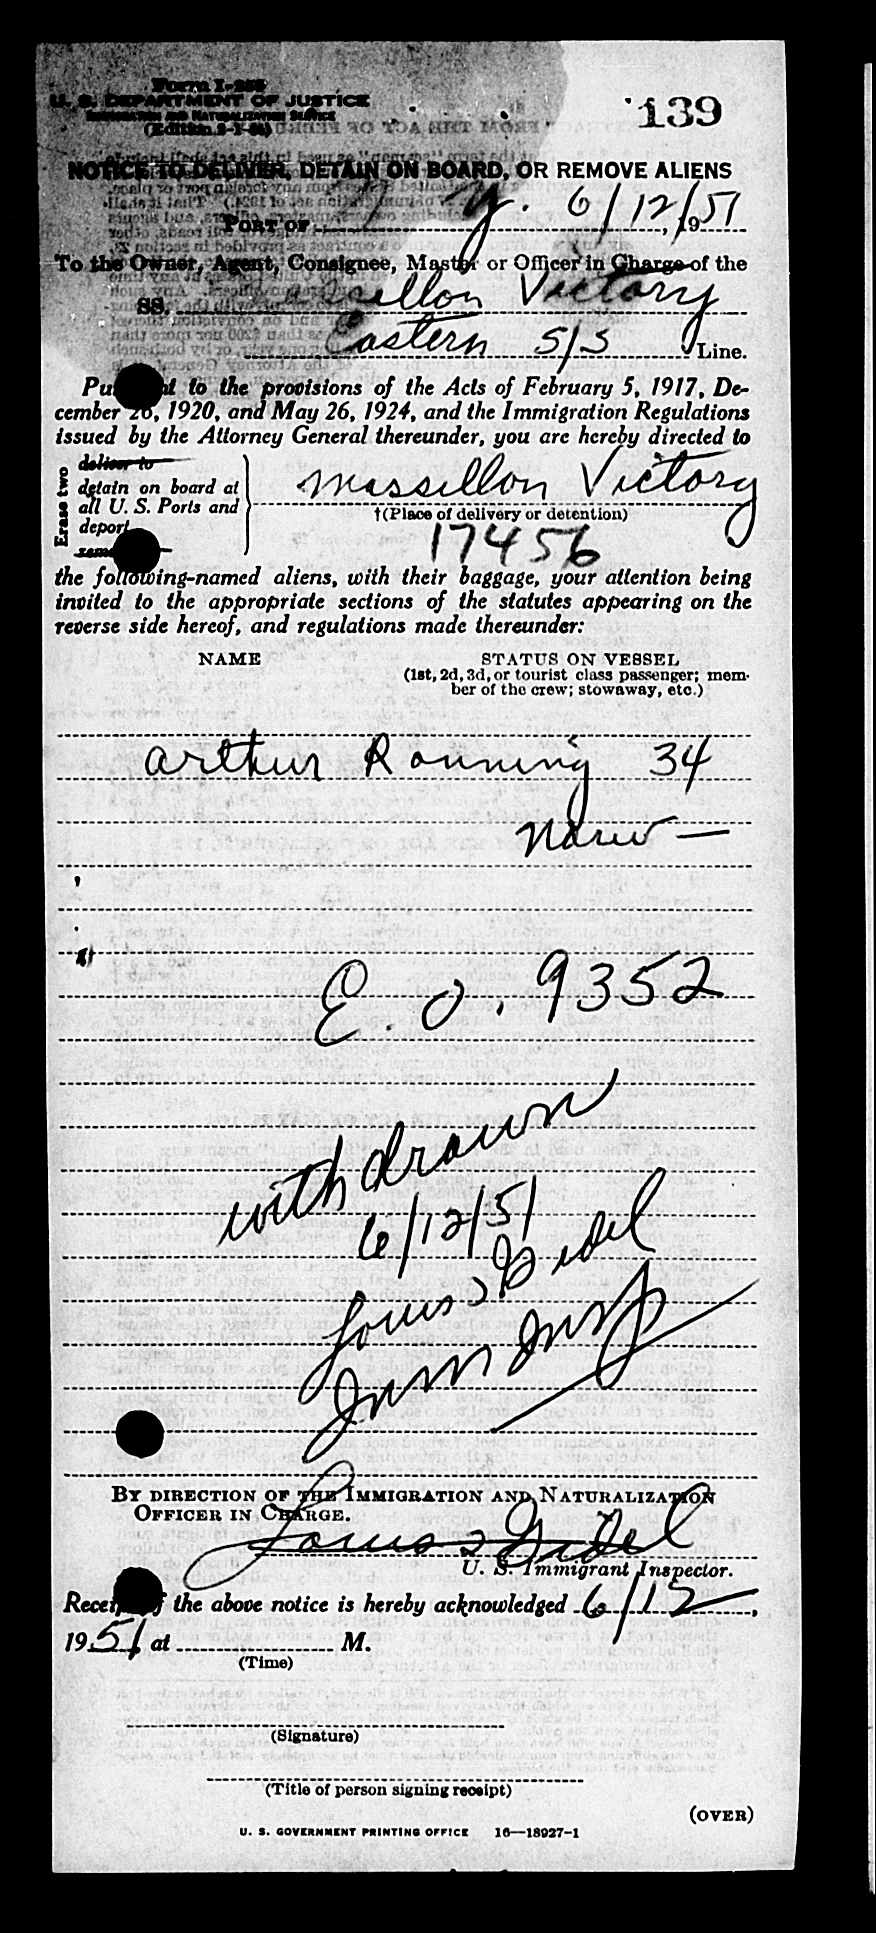 Form I-259
U. S. DEPARTMENT OF JUSTICE
IMMIGRATION AND NATURALIZATION SERVICE
139
NOTICE TO DELIVER, DETAIN ON BOARD, OR REMOVE ALIENS
PORT OF y. 6/12/, 1951
To the Owner, Agent, Consignee, Master or Officer in Charge of the
SS. massillon Victory
Eastern S/S Line.
Pursuant to the provisions of the Acts of February 5, 1917, De-
cember 26, 1920, and May 26, 1924, and the Immigration Regulations
issued by the Attorney General thereunder, you are hereby directed to
Erase two
deliver to
detain on board at
all U. S. Ports and
deport
remove
massillon Victory
†(Place of delivery or detention)
17456
the following-named aliens, with their baggage, your attention being
invited to the appropriate sections of the statutes appearing on the
reverse side hereof, and regulations made thereunder:
NAME
STATUS ON VESSEL
(1st, 2d, 3d, or tourist class passenger; mem-
ber of the crew; stowaway, etc.)
Arthur Ronning 34
Norw —
E. O. 9352
withdrawn
6/12/51
Louis Gidel
Imm Insp
BY DIRECTION OF THE IMMIGRATION AND NATURALIZATION
OFFICER IN CHARGE.
Louis Gidel
U. S. Immigrant Inspector.
Receipt of the above notice is hereby acknowledged 6/12,
1951, at M.
(Time)
(Signature)
(Title of person signing receipt)
(OVER)
U. S. GOVERNMENT PRINTING OFFICE 16—18927-1